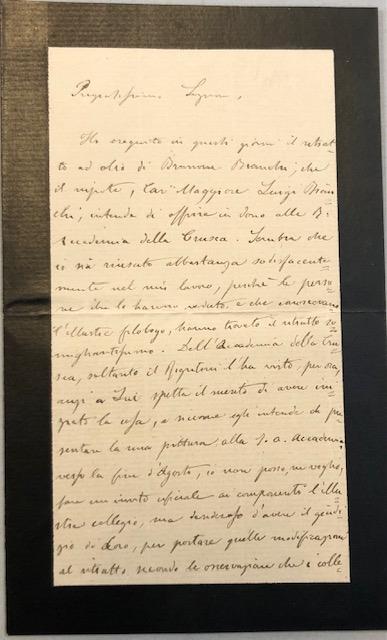 Pregiatissimo Signore,
Ho eseguito in questi giorni il ritrat=
to ad olio di Brunone Bianchi, che
il nipote, Cav. Maggiore Luigi Bian=
chi, intende di offrire in dono alla R.
Accademia della Crusca. Sembra che
io sia riuscito abbastanza sodisfacente=
mente nel mio lavoro, perchè le perso=
ne che lo hanno veduto, e che conoscevano
l'illustre filologo, hanno trovato il ritratto so=
migliantissimo. Dell'Accademia della Cru=
sca, soltanto il Rigutini l'ha visto, per ora,
anzi a Lui spetta il merito di avere
la cosa, e siccome egli intende di pre=
sentare la mia pittura alla s. a. Accademia
verso la fine d'Agosto, io non posso, ne voglio,
fare un invito ufficiale ai componenti l'illu=
stre collegio, ma desideroso d'avere il giudi=
zio di Loro, per portare quelle modificazioni
al ritratto, secondo le osservazioni che i colle=